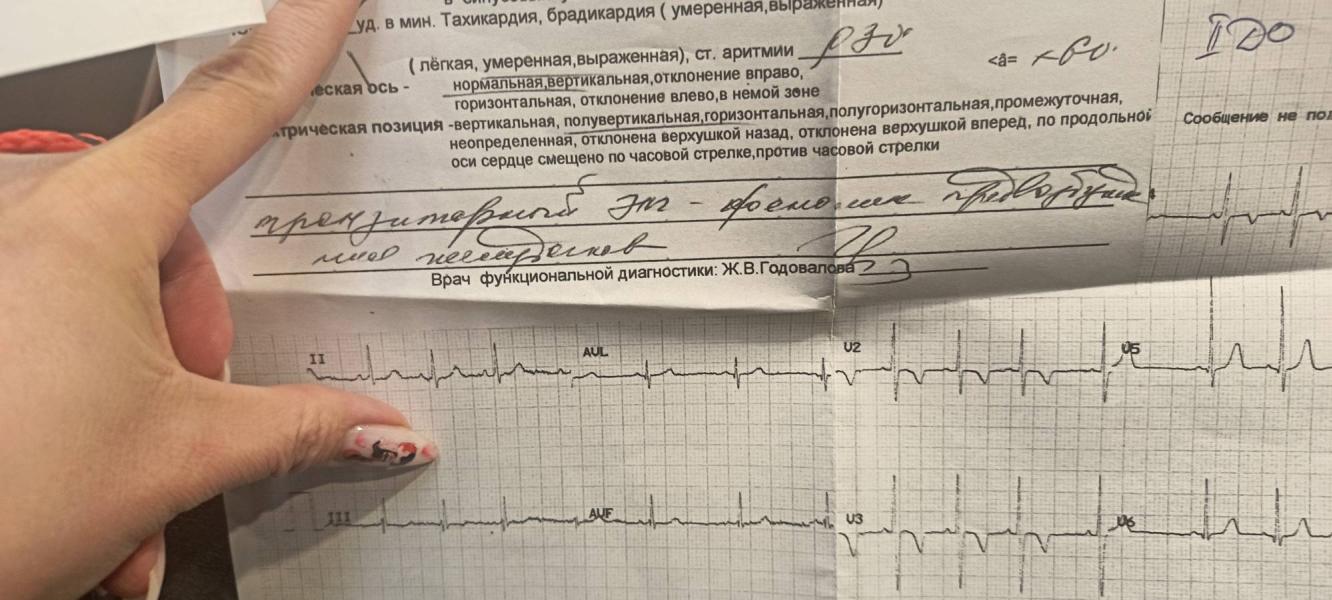 уд. в мин. Тахикардия, брадикардия ( умеренная,выраженная)
( лёгкая, умеренная,выраженная), ст. аритмии
<â=
ось - нормальная,вертикальная,отклонение вправо,
горизонтальная, отклонение влево,в немой зоне
позиция -вертикальная, полувертикальная,горизонтальная,полугоризонтальная,промежуточная,
неопределенная, отклонена верхушкой назад, отклонена верхушкой вперед, по продольной
оси сердце смещено по часовой стрелке,против часовой стрелки
Сообщение не
транзиторный ЭКГ - феномен
желудочков
Врач функциональной диагностики: Ж.В.Годовалова
II
AUL
U2
U5
III
AUF
U3
U6